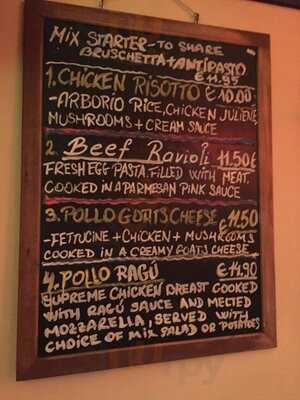 MIX STARTER - TO SHARE
BRUSCHETTA + ANTIPASTO
€11.95
1. CHICKEN RISOTTO €10.00
- ARBORIO RICE, CHICKEN JULIENE,
MUSHROOMS + CREAM SAUCE
2. Beef Ravioli 11.50€
FRESH EGG PASTA FILLED WITH MEAT.
COOKED IN A PARMESAN PINK SAUCE
3. POLLO GOATS CHEESE €11.50
- FETTUCINE + CHICKEN + MUSHROOMS
COOKED IN A CREAMY GOATS CHEESE
4. POLLO RAGÚ €14.90
SUPREME CHICKEN BREAST COOKED
WITH RAGÚ SAUCE AND MELTED
MOZZARELLA, SERVED WITH
CHOICE OF MIX SALAD OR POTATOES